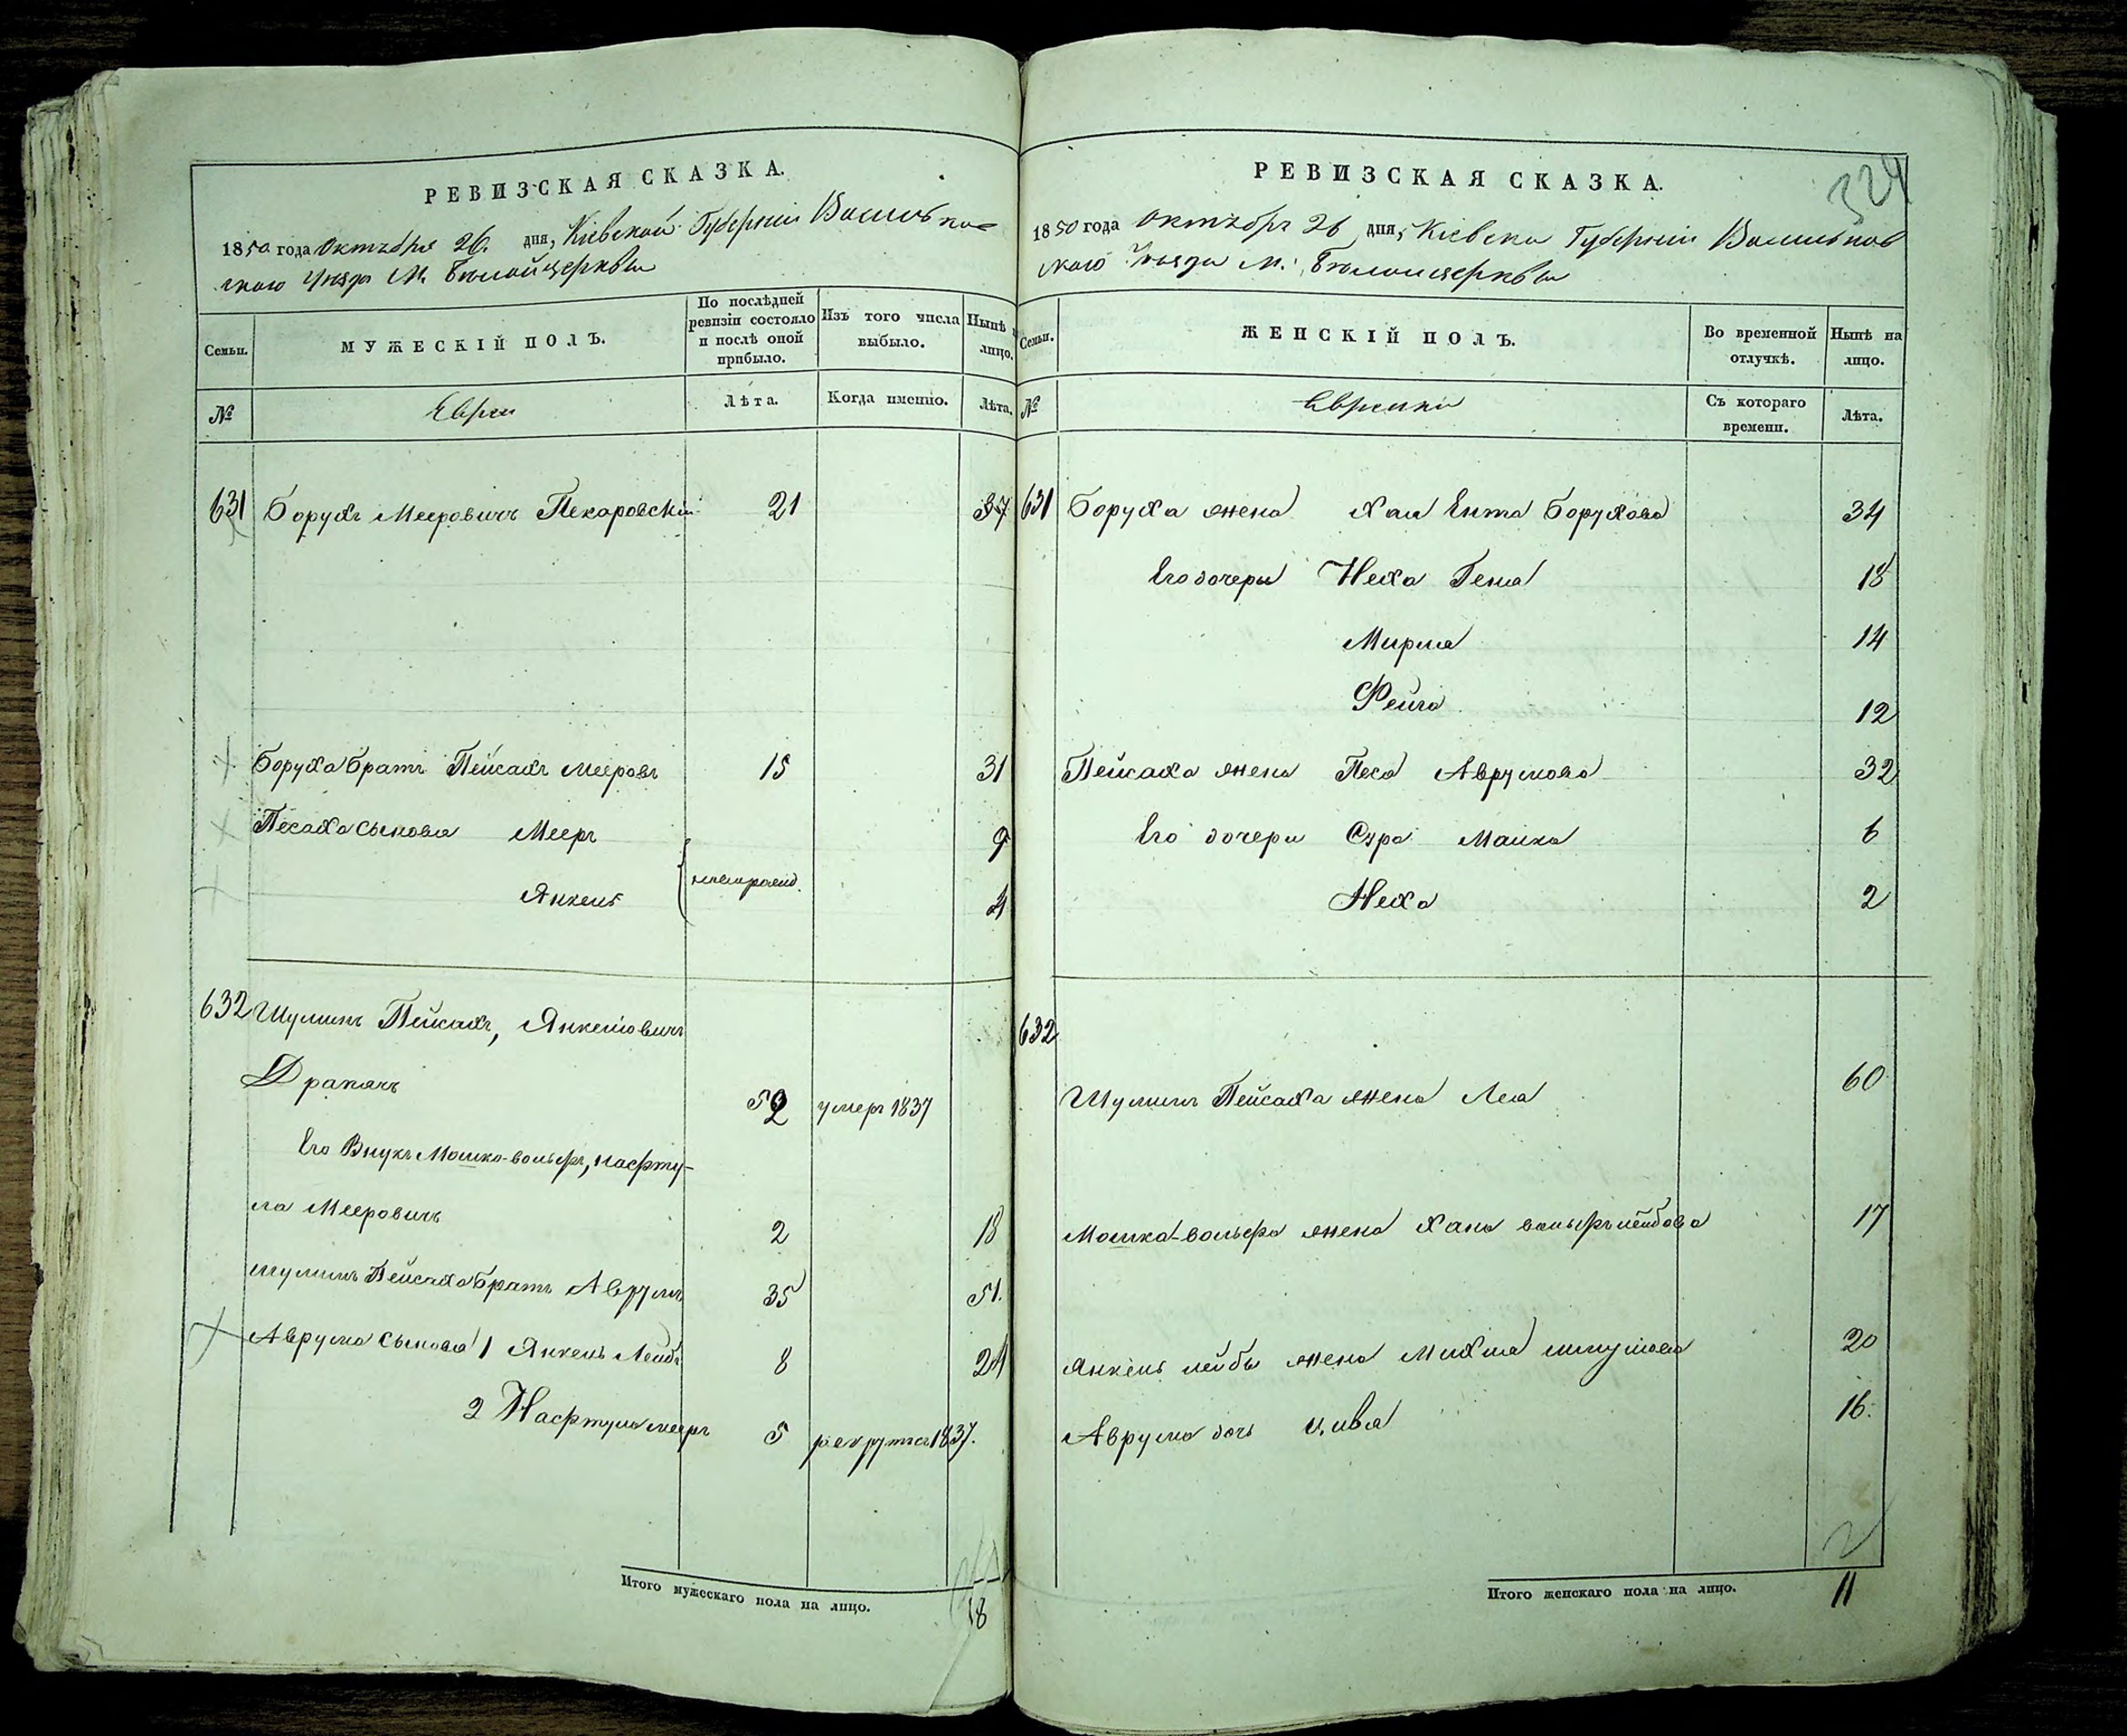 РЕВИЗСКАЯ СКАЗКА.
1850 года Октября 26. дня, Кіевской Губерніи Васильков-
скаго Уѣзда М. Бѣлой церквы
Семьи.
МУЖЕСКІЙ ПОЛЪ.
По послѣдней ревизіи состояло и послѣ оной прибыло.
Изъ того числа выбыло.
Нынѣ на лицо.
№
Евреи
Лѣта.
Когда именно.
Лѣта.
631 Борухъ Мееровичъ Пекаровскій 21 37
Боруха братъ Пейсахъ Мееровъ 15 31
Песаха сыновья Мееръ 9
Янкель 4
632 Шулимъ Пейсахъ, Янкелювичъ
Драпачъ 52 умеръ 1837
Его Внукъ Мошко-вольфъ, нафту-
ла Мееровичъ 2 18
шулимъ Пейсаха братъ Аврумъ 35 51.
Аврума сыновья 1 Янкель Лейбъ 8 24
2 Нафтула мееръ 5 рекрутъ 1837.
Итого мужескаго пола на лицо. 8
РЕВИЗСКАЯ СКАЗКА.
324
1850 года Октября 26 дня, Кіевской Губерніи Васильков
скаго Уѣзда М. Бѣлой церквы
Семьи.
ЖЕНСКІЙ ПОЛЪ.
Во временной отлучкѣ.
Нынѣ на лицо.
№
Еврейки
Съ котораго времени.
Лѣта.
631 Боруха жена Хая Ента Борухова 34
Его дочеры Неха Геня 18
Мирля 14
Фейга 12
Пейсаха жена Песа Аврумова 32
Его дочеры Сура Малка 6
Неха 2
632
Шулимъ Пейсаха жена Лея 60
Мошка-вольфа жена Хана вольфълейбова 17
Янкель лейбы жена Михля шмулёва 20
Аврума дочь Цивя 16.
Итого женскаго пола на лицо. 11